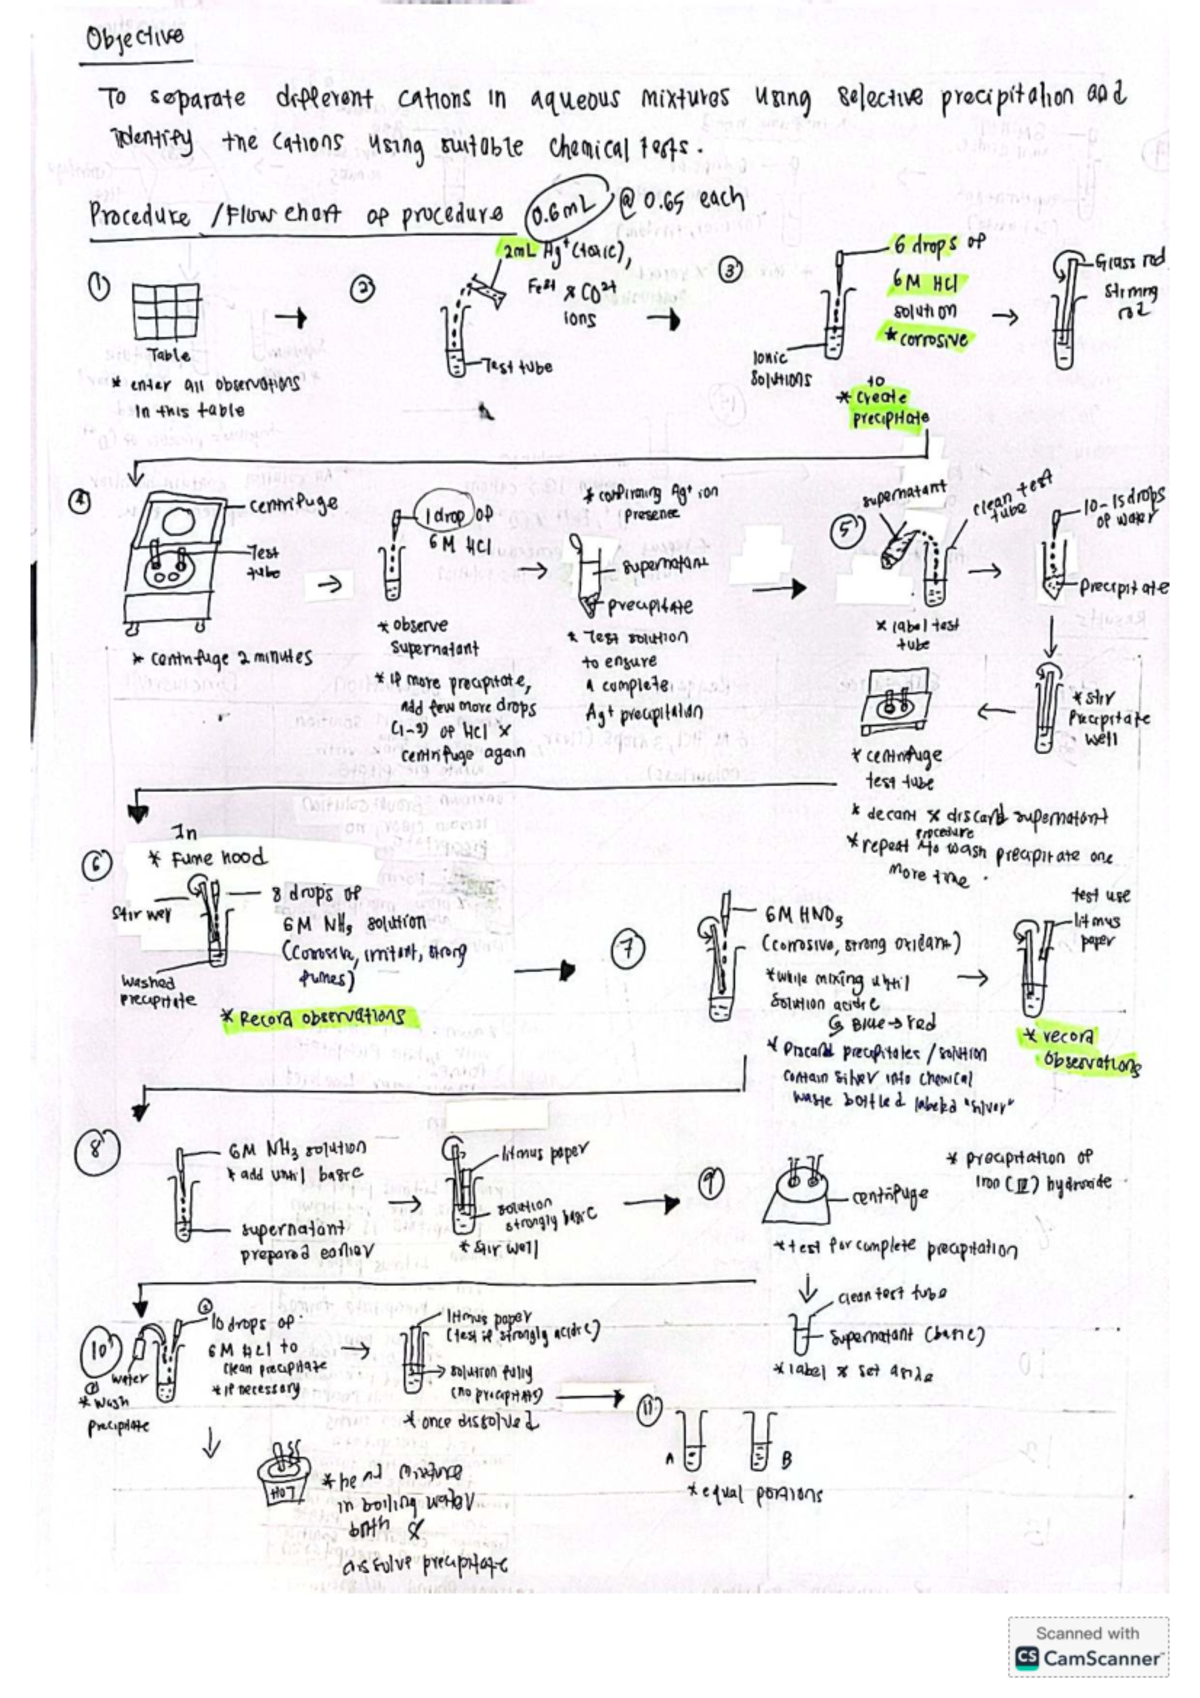 Objective
To separate different cations in aqueous mixtures using selective precipitation and
identify the cations using suitable chemical tests.
Procedure / Flow chart of procedure 0.6mL @ 0.65 each
1
Table
* enter all observations
in this table
2
2mL Ag+ (toxic),
Fe3+ & CO2+
ions
Test tube
3
6 drops of
6M HCl
solution
* corrosive
Ionic
Solutions
to
* create
precipitate
Glass rod
stirring
rod
4
centrifuge
Test
tube
* centrifuge 2 minutes
1 drop of
6M HCl
* observe
supernatant
* if more precipitate,
add few more drops
(1-3) of HCl &
centrifuge again
* confirming Ag+ ion
presence
supernatant
precipitate
* Test solution
to ensure
a complete
Ag+ precipitation
5
supernatant
clean test
tube
* label test
tube
10-15 drops
of water
precipitate
* stir
precipitate
well
* centrifuge
test tube
* decant & discard supernatant
* repeat procedure to wash precipitate one
more time.
6
In
* Fume hood
stir well
washed
precipitate
8 drops of
6M NH3 solution
(corrosive, irritant, strong
fumes)
* Record observations
7
6M HNO3
(corrosive, strong oxidant)
* while mixing until
solution acidic
Blue → red
* Discard precipitates / solution
contain silver into chemical
waste bottled labeled "silver"
test use
litmus
paper
* record
observations
8
6M NH3 solution
* add until basic
supernatant
prepared earlier
litmus paper
solution
strongly basic
* stir well
9
centrifuge
* precipitation of
iron (III) hydroxide
* test for complete precipitation
clean test tube
supernatant (basic)
* label & set aside
10
water
* wash
precipitate
10 drops of
6M HCl to
clean precipitate
* if necessary
HOT
* heat mixture
in boiling water
bath &
dissolve precipitate
litmus paper
(test if strongly acidic)
solution fully
(no precipitates)
* once dissolved
11
A
B
* equal portions
Scanned with
CS CamScanner